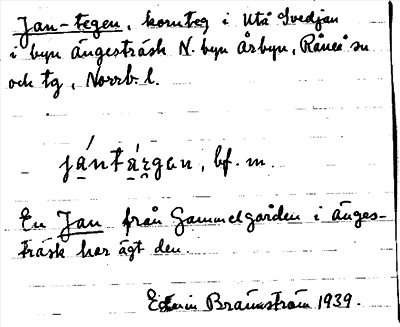 Jan-tegen, kornteg i Utå Svedjan
i byn Ängesträsk N. byn Årbyn, Råneå sn
och tg, Norrb. l.
jántárgan, bf. m.
En Jan från Gammelgården i Änges-
träsk har ägt den.
Edwin Brännström 1939.